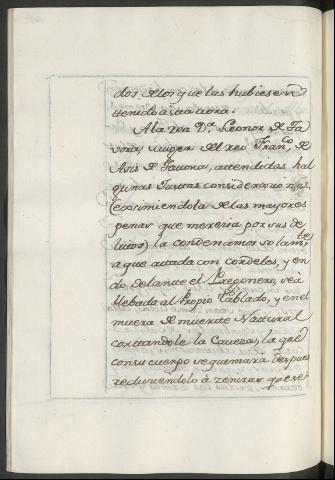 dos de los que las hubiesen
tenido asta aora.
A la rea D.ª Leonor de Ta
vora, muger del reo Fran.co de
Asis de Tavora, attendidas hal
gunas Justas consideraciones,
(eximiendola de las mayores
penas que merecia por sus de
lictos) la condenamos solam.te
a que atada con cordeles, y en
do delante el Pregonero, sea
llebada al Propio tablado, y en el
muera de muerte Natural
cortandole la Caveza, la que
con su cuerpo se quemará despues
reduciendolo á zenizas que se